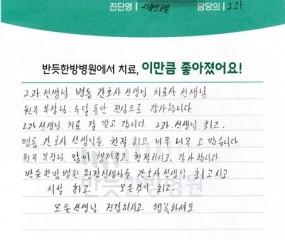 진단명 | 담당의 | 2과
반듯한방병원에서 치료, 이만큼 좋아졌어요!
2과 선생님 병동 간호사 선생님 치료사 선생님
원무 부장님. 수달 동안 진심으로 감사합니다
2과 선생님 치료 잘 받고 갑니다. 2과. 선생님. 최고.
병동. 간호사 선생님들 친절 하고. 너무 너무 고맙습니다
원무 부장님. 많이 챙겨주고 친절하고. 감사합니다
반듯한방병원 원장선생님들 간호사 선생님. 최고시고
시설 최고. 모든것이 최고.
모든 선생님 건강하시고. 행복하세요